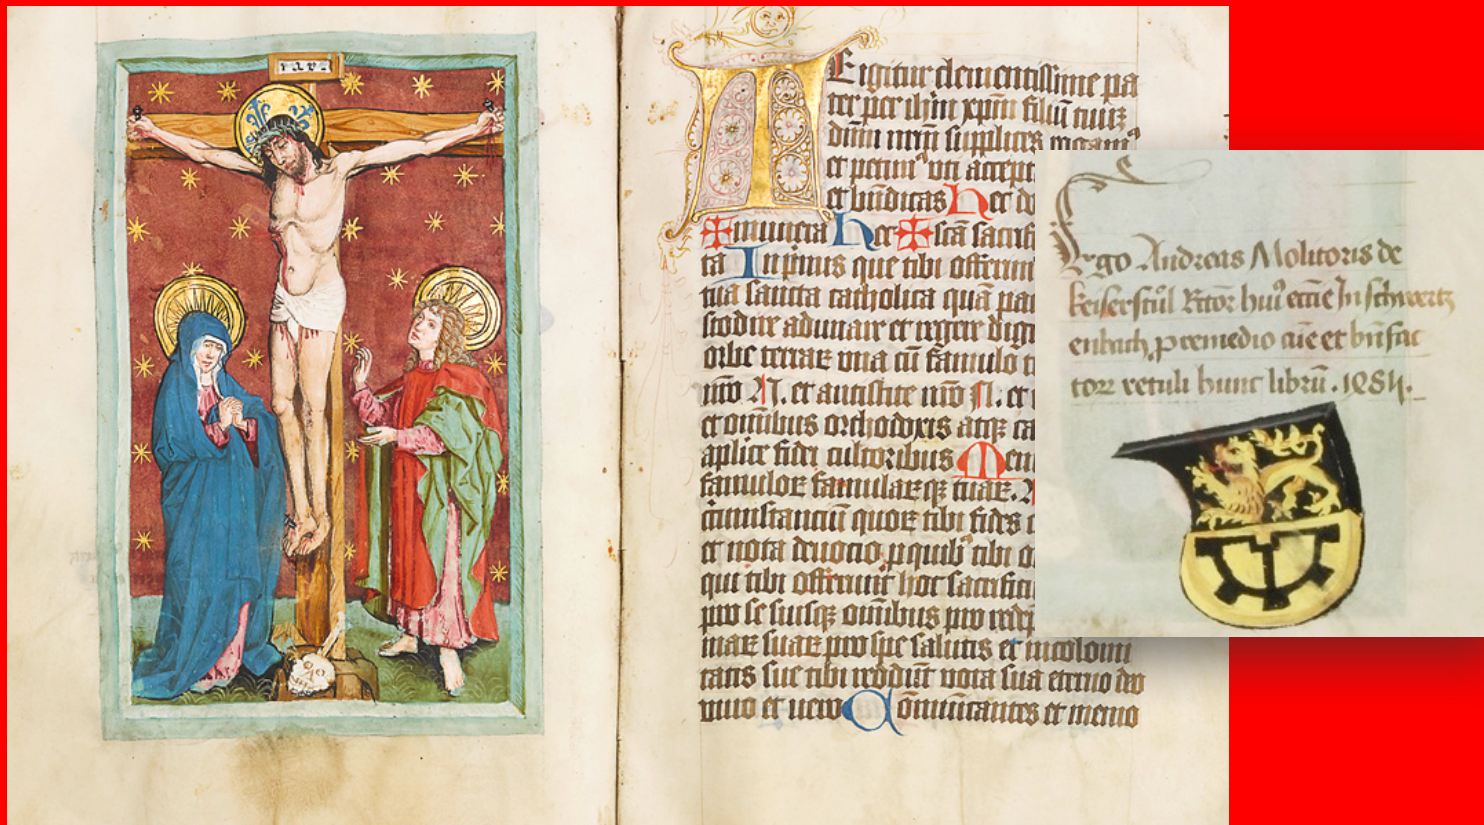 TE igitur clementissime pa
ter per ihm xpm filiu tuu
dnm nrm supplices rogam
et petim uti accept
et bndicas hec do
munera hec sca sacrif
ta In primis que tibi offerim
tua sancta catholica qua pac
stodire adunare et regere dign
orbe terrar una cu famulo t
nro N. et antistite nro N. et
et omibus orthodoxis atqz ca
aplice fidei cultoribus Mem
famulor famularqz tuar. N
cumstanciu quor tibi fides c
et nota devocio p quib tibi o
qui tibi offerunt hoc sacrifici
pro se suisqz omibus pro redep
mar suar pro spe salutis et incolomi
tatis sue tibi reddut vota sua eterno deo
vivo et vero Comunicantes et memo
Ergo Andreas Molitoris de
keiserstul Rtor hui eccie In schwertz
enbach, p remedio aie et bnfac
tor retuli hunc libru. 1484.